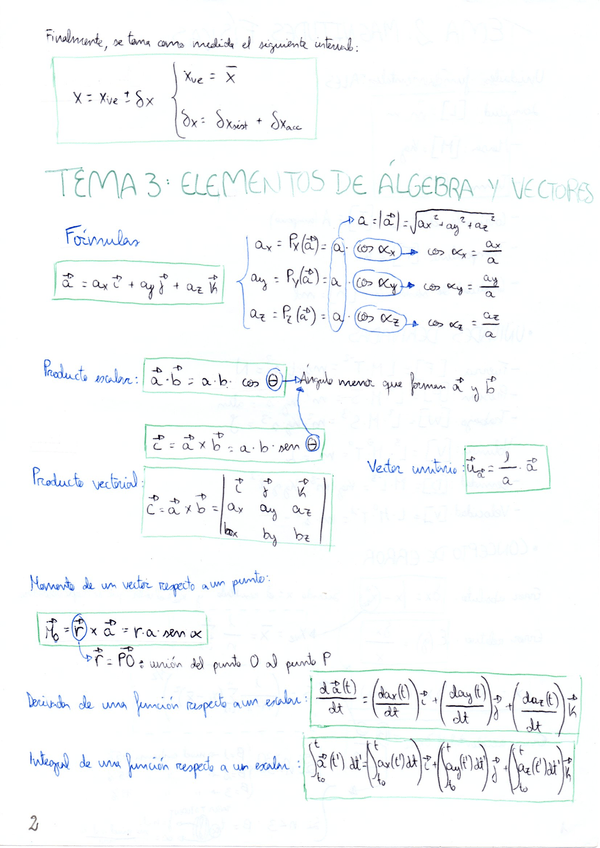 Finalmente, se toma como medida el siguiente intervalo:
x = xve ± δx { xve = x̄
δx = δxsist + δxacc
TEMA 3: ELEMENTOS DE ÁLGEBRA Y VECTORES
Fórmulas
a = |a⃗| = √(ax² + ay² + az²)
a⃗ = ax i⃗ + ay j⃗ + az k⃗
ax = Px(a⃗) = a · cos αx → cos αx = ax/a
ay = Py(a⃗) = a · cos αy → cos αy = ay/a
az = Pz(a⃗) = a · cos αz → cos αz = az/a
Producto escalar: a⃗ · b⃗ = a · b · cos θ → Ángulo menor que forman a⃗ y b⃗
c⃗ = a⃗ x b⃗ = a · b · sen θ
Producto vectorial: c⃗ = a⃗ x b⃗ = | i⃗ j⃗ k⃗ |
| ax ay az |
| bx by bz |
Vector unitario: u⃗a⃗ = 1/a · a⃗
Momento de un vector respecto a un punto:
M⃗o = r⃗ x a⃗ = r · a · sen α
r⃗ = PO⃗: unión del punto O al punto P
Derivada de una función respecto a un escalar: da⃗(t)/dt = (dax(t)/dt) i⃗ + (day(t)/dt) j⃗ + (daz(t)/dt) k⃗
Integral de una función respecto a un escalar: ∫t₀ᵗ a⃗(t') dt' = (∫t₀ᵗ ax(t') dt) i⃗ + (∫t₀ᵗ ay(t') dt') j⃗ + (∫t₀ᵗ az(t') dt') k⃗
2